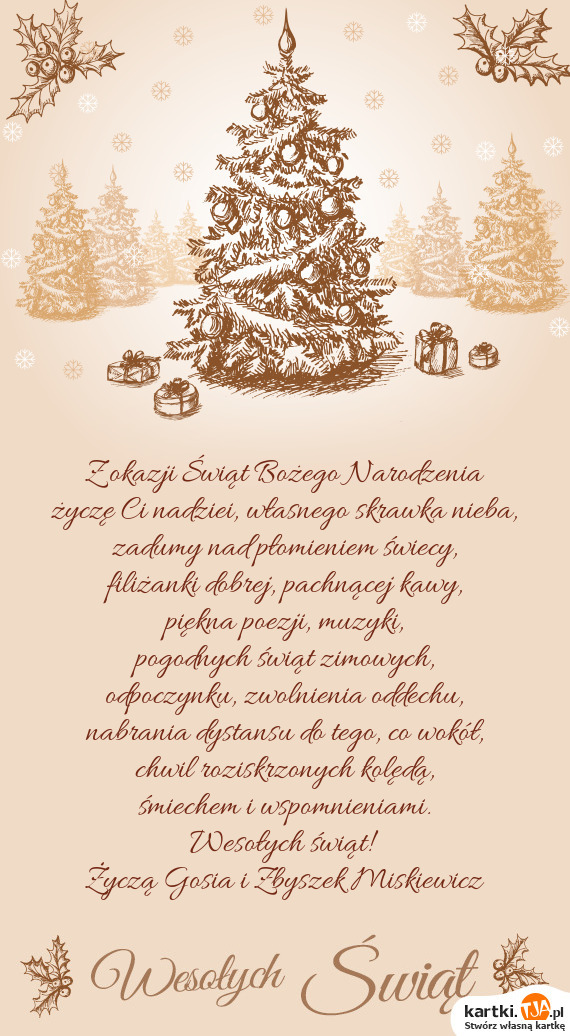 Z okazji Świąt Bożego Narodzenia
życzę Ci nadziei, własnego skrawka nieba,
zadumy nad płomieniem świecy,
filiżanki dobrej, pachnącej kawy,
piękna poezji, muzyki,
pogodnych świąt zimowych,
odpoczynku, zwolnienia oddechu,
nabrania dystansu do tego, co wokół,
chwil roziskrzonych kolędą,
śmiechem i wspomnieniami.
Wesołych świąt!
Życzą Gosia i Zbyszek Miskiewicz
Wesołych Świąt
kartki.TJA.pl
Stwórz własną kartkę